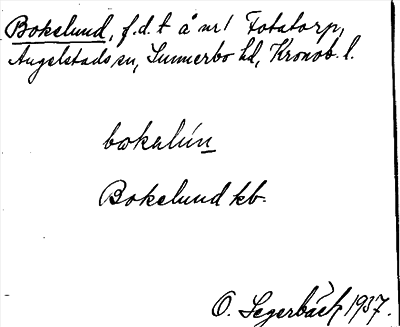 Bokelund, f.d. t å nr 1 Fotatorp,
Angelstads sn, Sunnerbo hd, Kronob. l.
bokalún
Bokelund kb.
O. Segerbäck 1937.